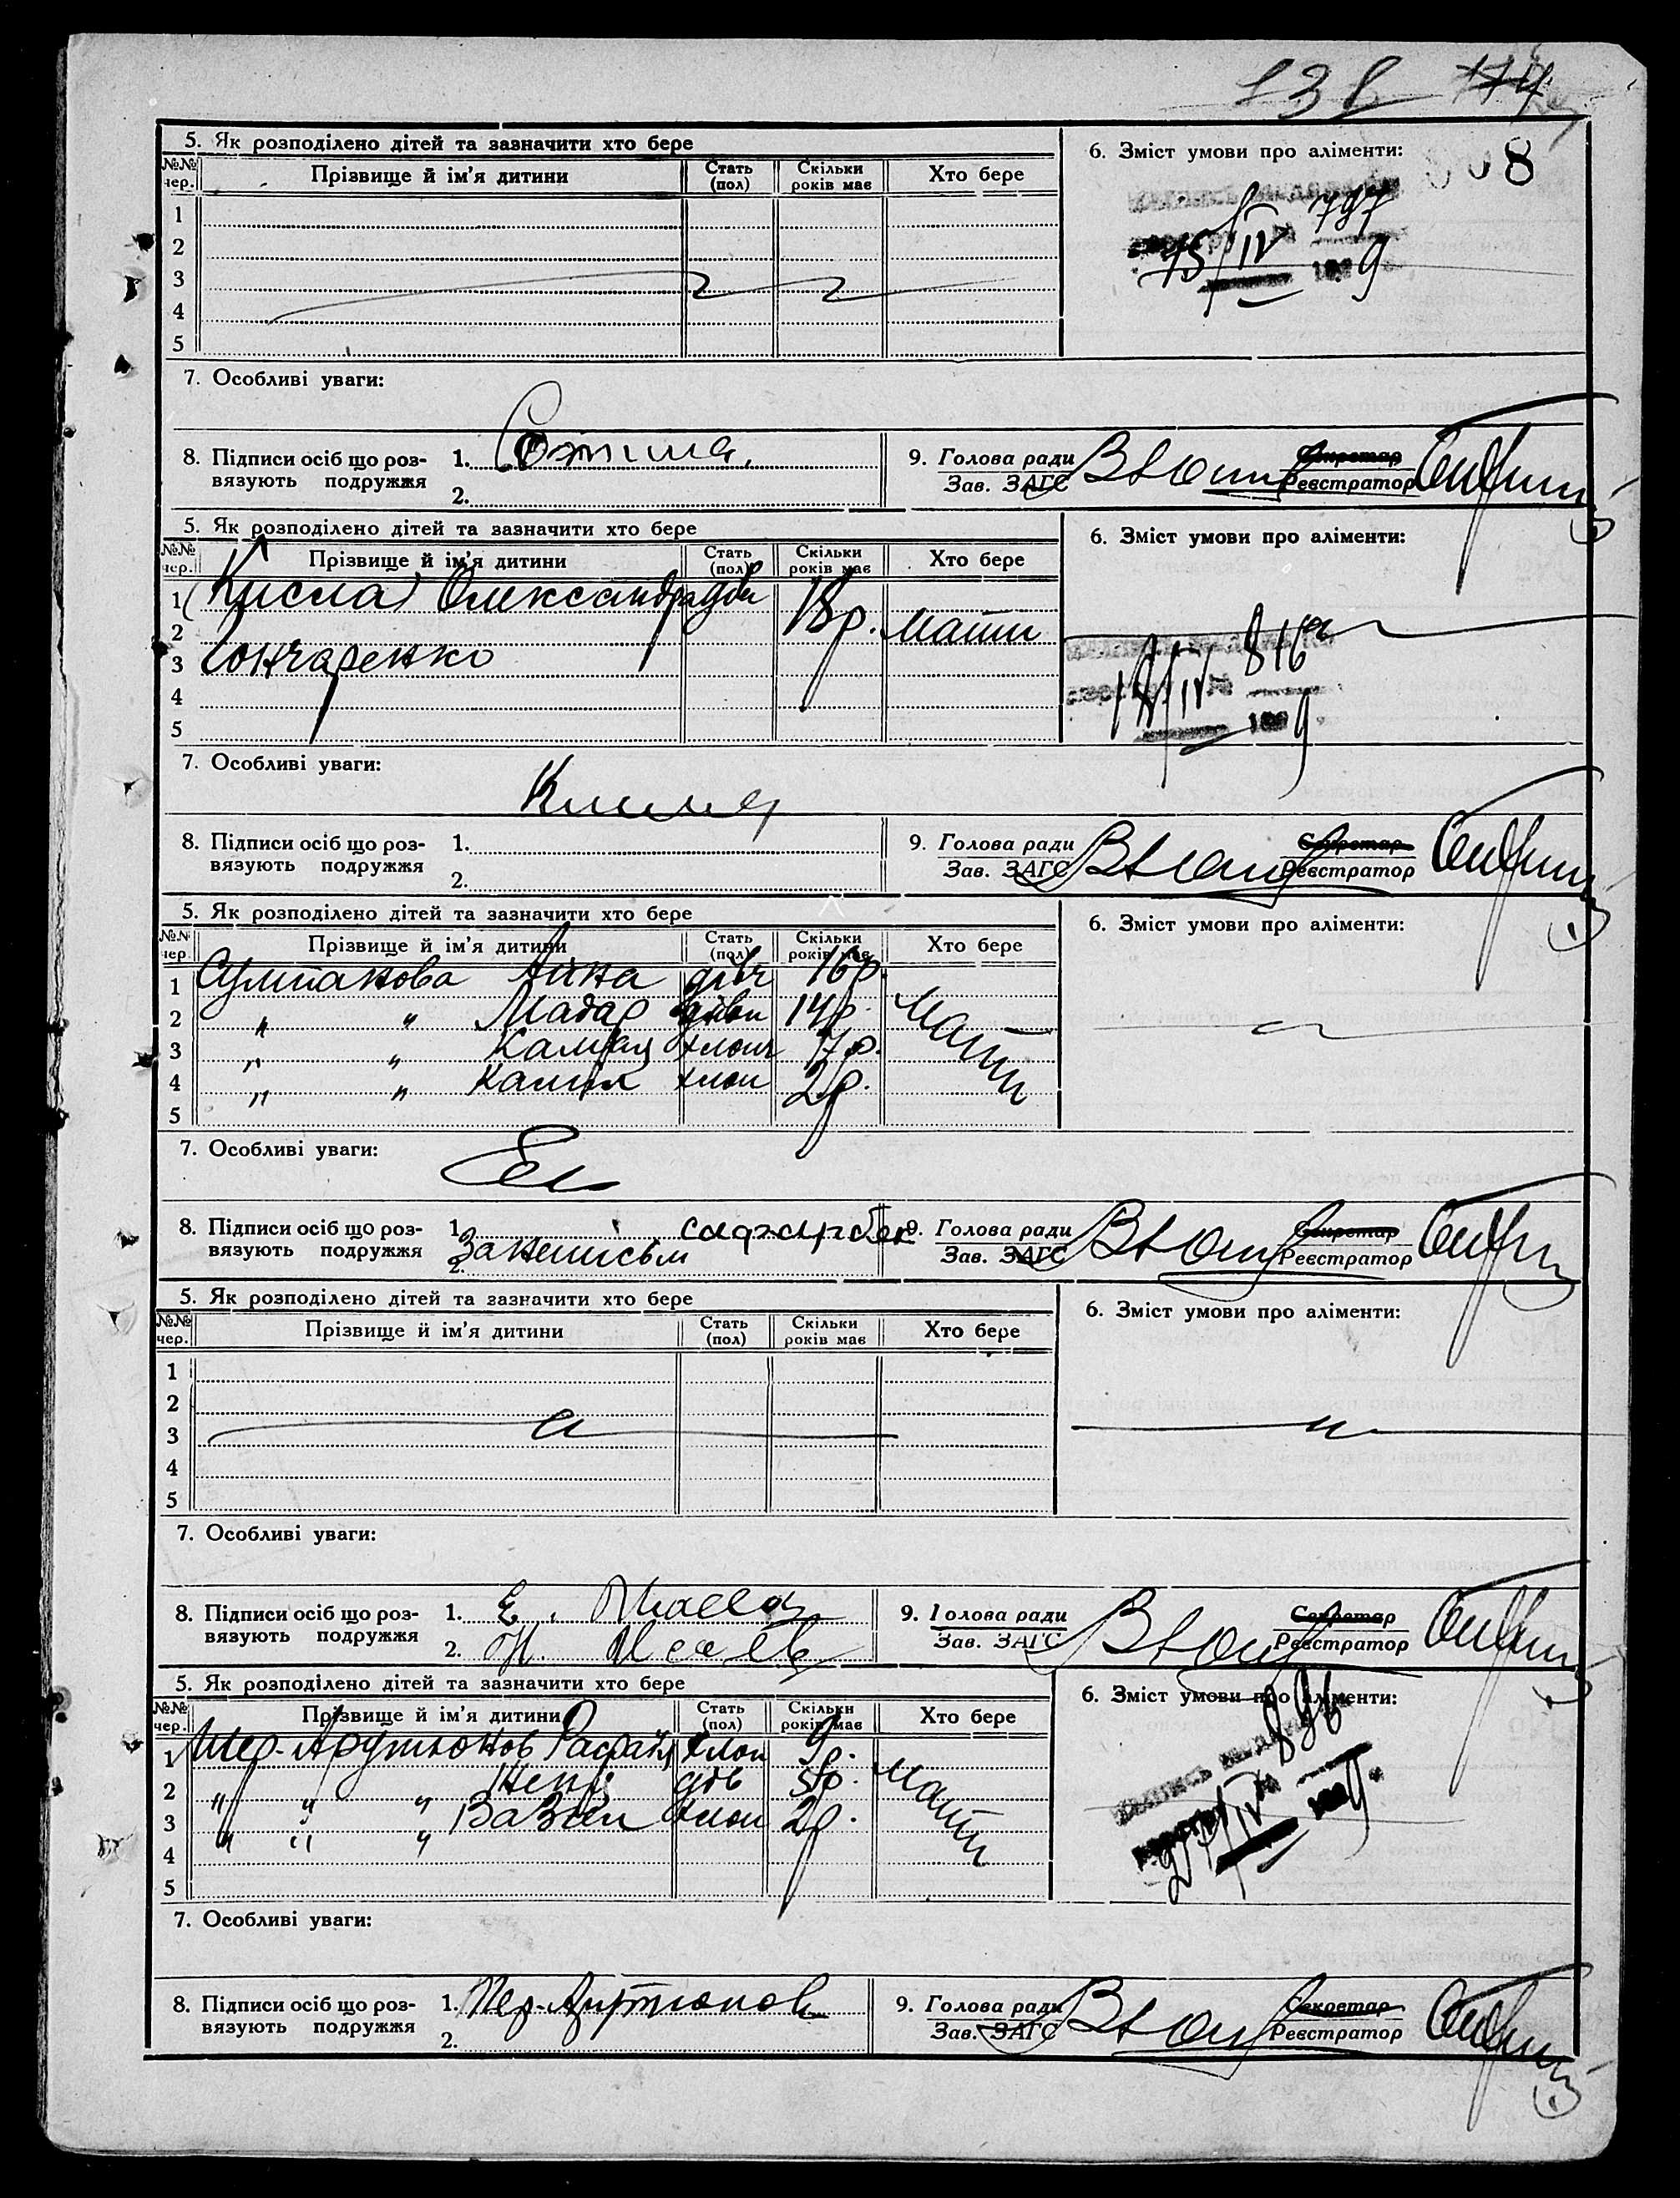 138
8
5. Як розподілено дітей та зазначити хто бере
6. Зміст умови про аліменти:
№№ чер. Прізвище й ім'я дитини Стать (пол) Скільки років має Хто бере
797
15/IV 1929
1
2
3
4
5
7. Особливі уваги:
8. Підписи осіб що роз-
вязують подружжя
1.
2.
9. Голова ради
Зав. ЗАГС
Секретар
Реєстратор
5. Як розподілено дітей та зазначити хто бере
6. Зміст умови про аліменти:
№№ чер. Прізвище й ім'я дитини Стать (пол) Скільки років має Хто бере
1 (Кисла) Олександра дівч 18р. мати
2
3 Гончаренко
4
5
816
7. Особливі уваги:
8. Підписи осіб що роз-
вязують подружжя
1.
2.
9. Голова ради
Зав. ЗАГС
Секретар
Реєстратор
5. Як розподілено дітей та зазначити хто бере
6. Зміст умови про аліменти:
№№ чер. Прізвище й ім'я дитини Стать (пол) Скільки років має Хто бере
1 Султанова Аина дівч 16р. мати
2 " " Мадар дівч 14р.
3 " " хлоп 7р.
4 " " Камил хлоп 2р.
5
7. Особливі уваги:
8. Підписи осіб що роз-
вязують подружжя
1.
2.
9. Голова ради
Зав. ЗАГС
Секретар
Реєстратор
5. Як розподілено дітей та зазначити хто бере
6. Зміст умови про аліменти:
№№ чер. Прізвище й ім'я дитини Стать (пол) Скільки років має Хто бере
1
2
3
4
5
7. Особливі уваги:
8. Підписи осіб що роз-
вязують подружжя
1. Е.
2. Исаев
9. Голова ради
Зав. ЗАГС
Секретар
Реєстратор
5. Як розподілено дітей та зазначити хто бере
6. Зміст умови про аліменти:
№№ чер. Прізвище й ім'я дитини Стать (пол) Скільки років має Хто бере
896
27/IV 1929
1 Тер-Арутюнов Рафаїл хлоп 9р. мати
2 " " " дів 5р.
3 " " " хлоп 2р.
4
5
7. Особливі уваги:
8. Підписи осіб що роз-
вязують подружжя
1. Тер-Арутюнов
2.
9. Голова ради
Зав. ЗАГС
Секретар
Реєстратор